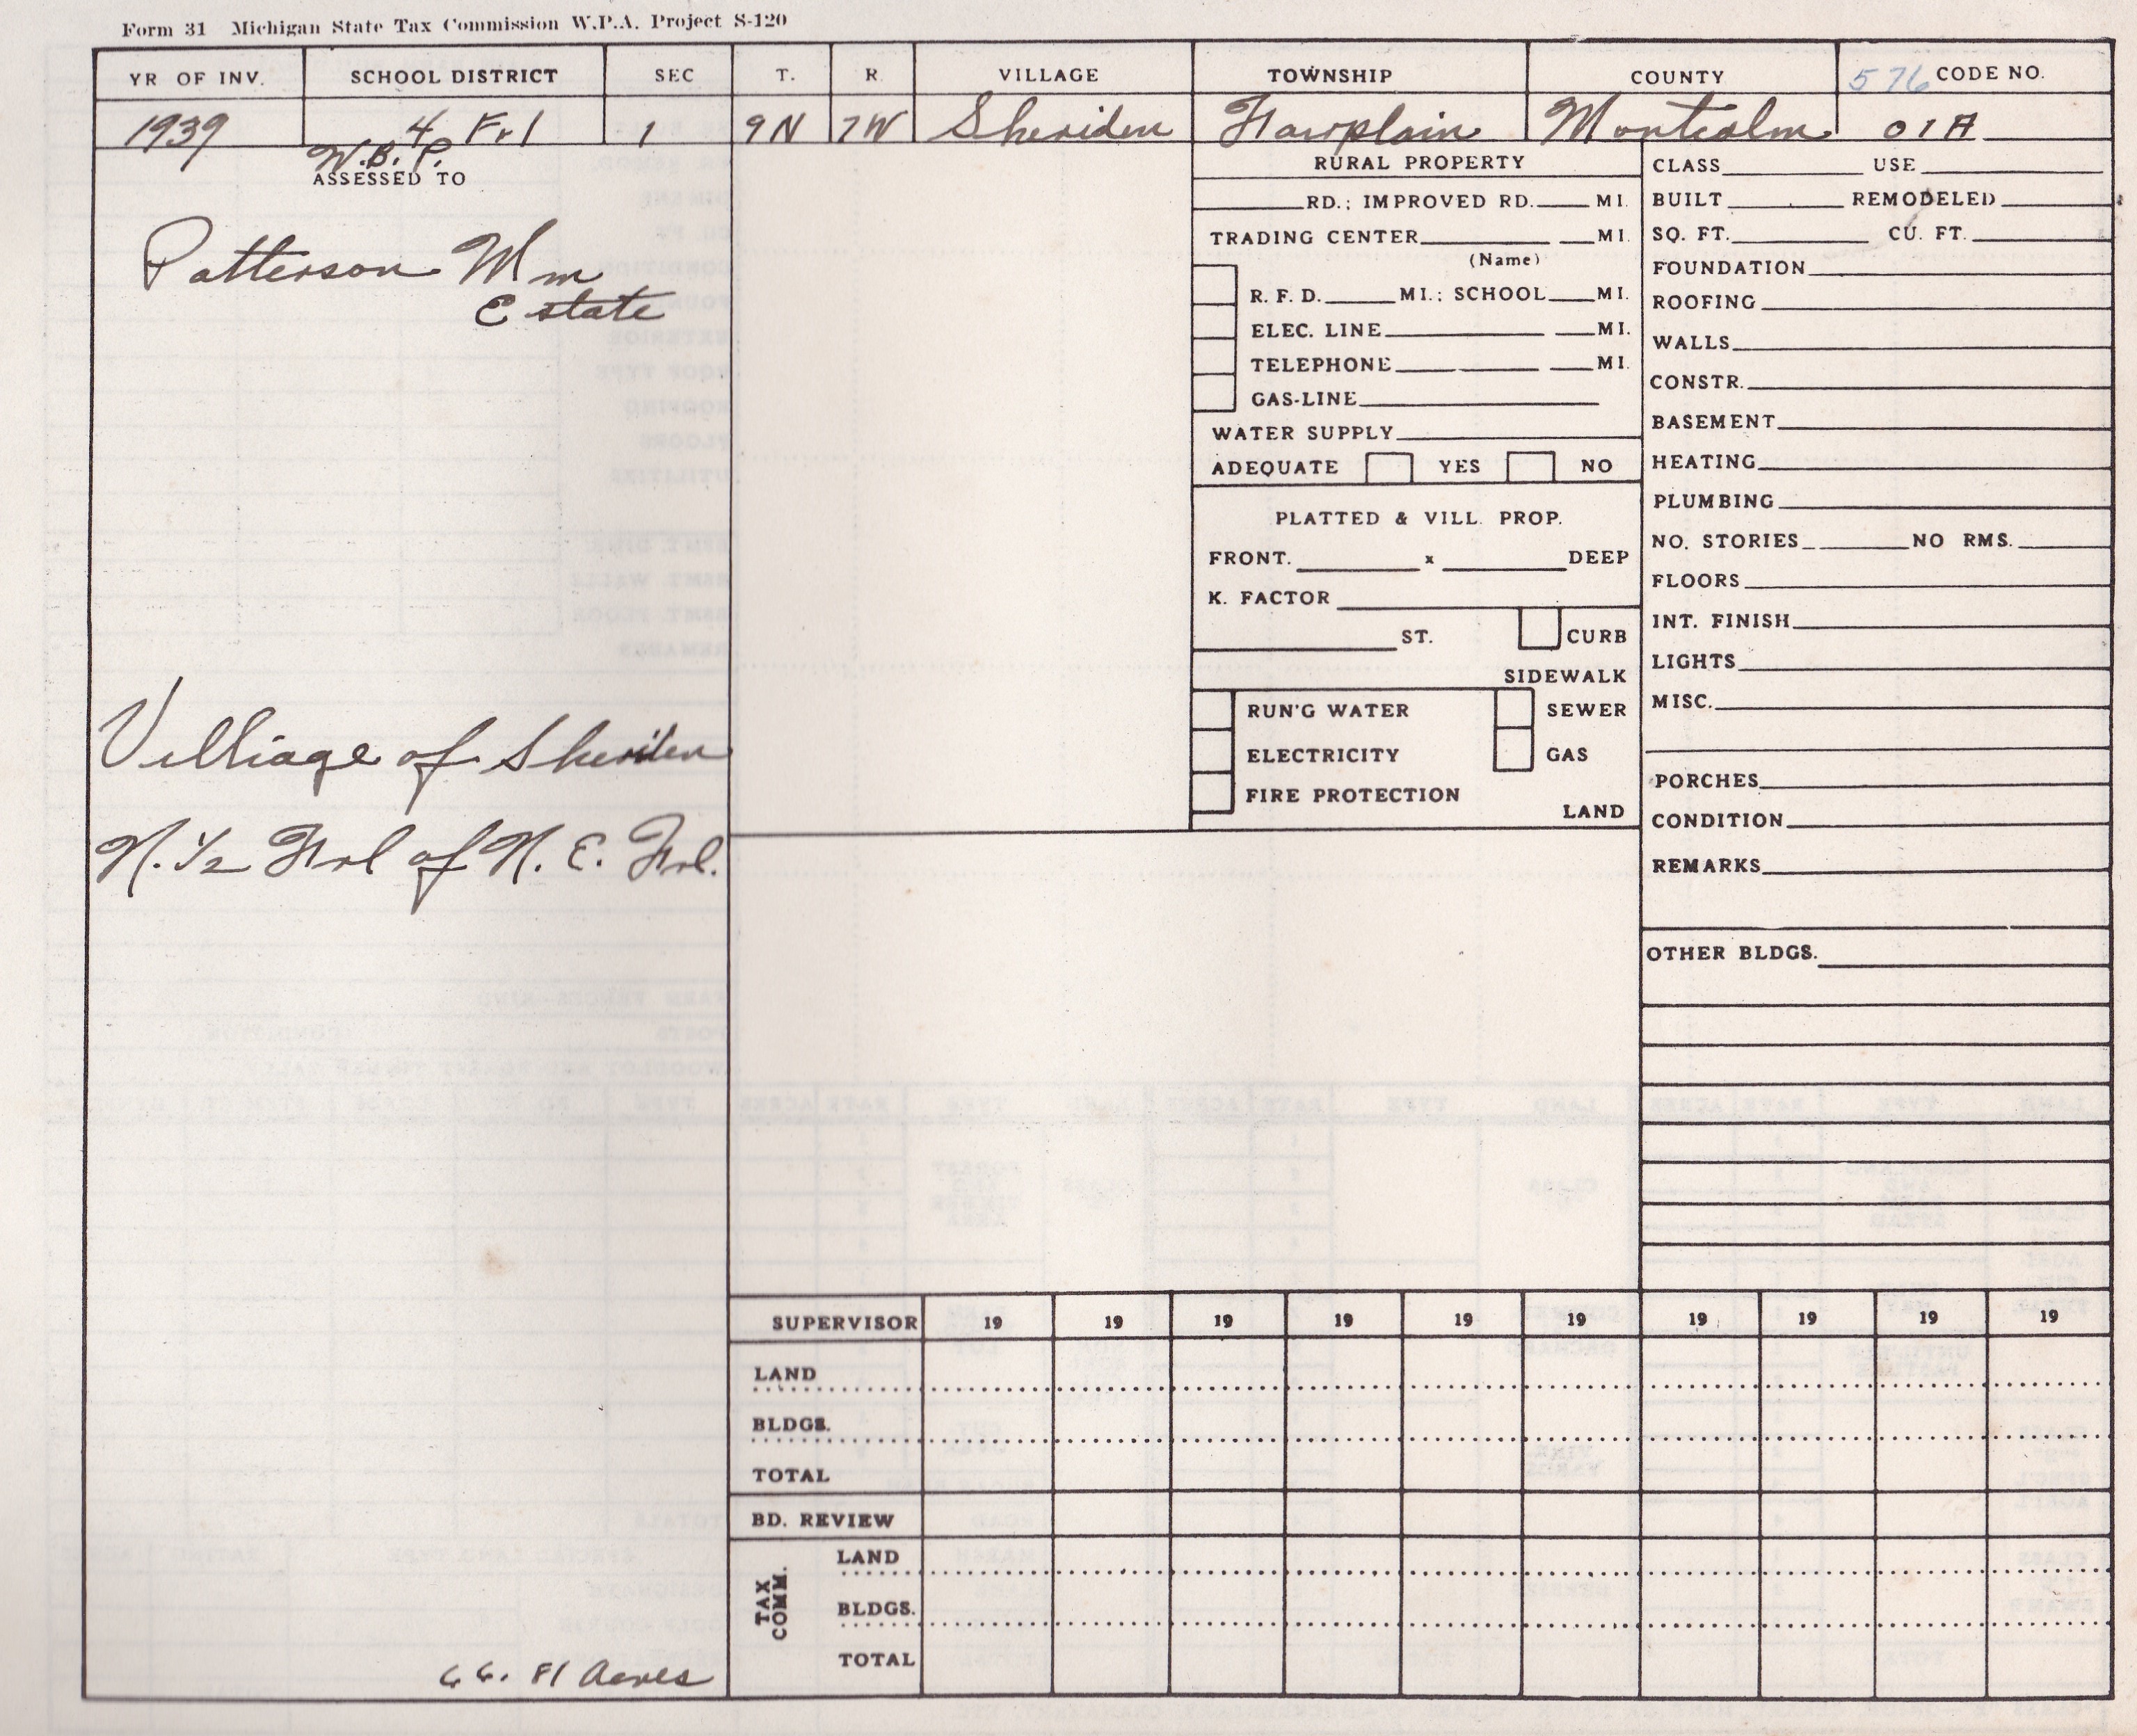 Form 31 Michigan State Tax Commission W.P.A. Project S-120
YR OF INV. SCHOOL DISTRICT SEC T. R VILLAGE TOWNSHIP COUNTY 576 CODE NO.
1939 4 Frl 1 9N 7W Sheriden Fairplain Montcalm 01A
W.B.P.
ASSESSED TO
Patterson Wm
Estate
Villiage of Sheriden
N. 1/2 Frl of N. E. Frl.
66. 81 Acres
RURAL PROPERTY
RD.; IMPROVED RD. MI.
TRADING CENTER MI.
(Name)
R. F. D. MI.; SCHOOL MI.
ELEC. LINE MI.
TELEPHONE MI.
GAS-LINE
WATER SUPPLY
ADEQUATE YES NO
PLATTED & VILL. PROP.
FRONT. x DEEP
K. FACTOR
ST. CURB
SIDEWALK
RUN'G WATER SEWER
ELECTRICITY GAS
FIRE PROTECTION
LAND
CLASS USE
BUILT REMODELED
SQ. FT. CU. FT.
FOUNDATION
ROOFING
WALLS
CONSTR.
BASEMENT
HEATING
PLUMBING
NO. STORIES NO RMS.
FLOORS
INT. FINISH
LIGHTS
MISC.
PORCHES
CONDITION
REMARKS
OTHER BLDGS.
SUPERVISOR 19 19 19 19 19 19 19 19 19 19
LAND
BLDGS.
TOTAL
BD. REVIEW
TAX COMM.
LAND
BLDGS.
TOTAL